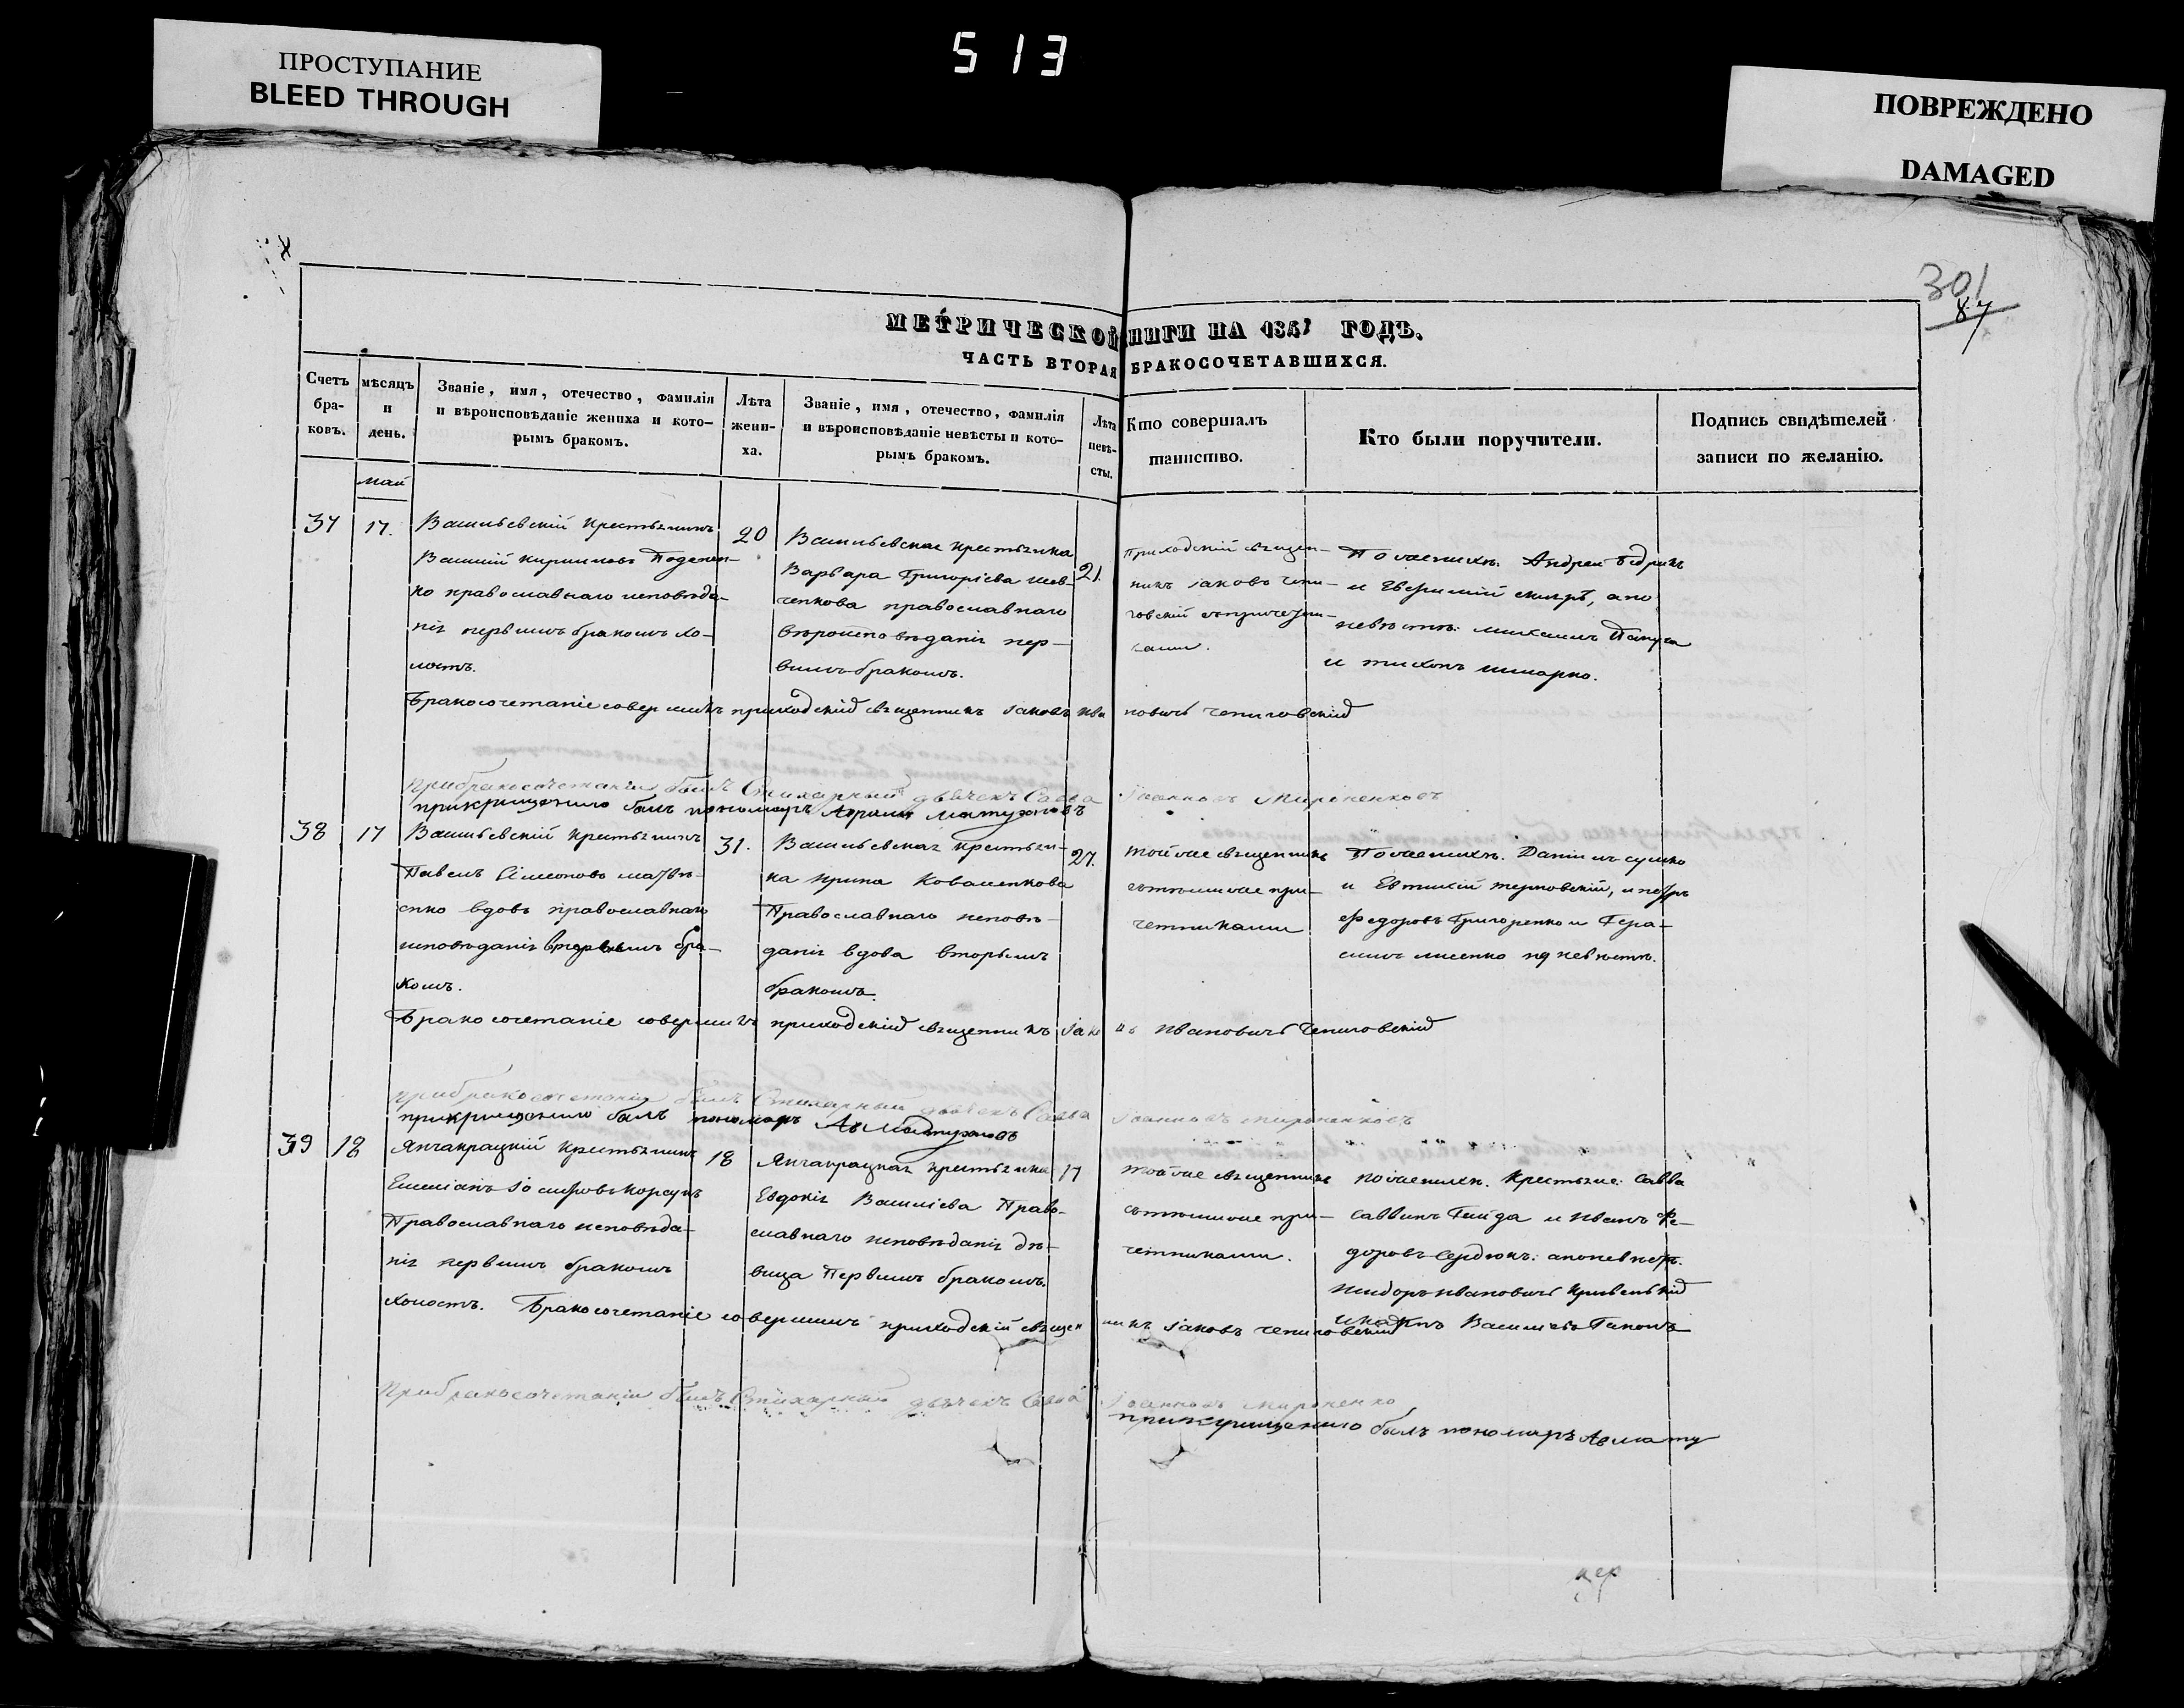 ПРОСТУПАНИЕ
BLEED THROUGH
513
ПОВРЕЖДЕНО
DAMAGED
301
87
МЕТРИЧЕСКОЙ КНИГИ НА 1857 ГОДЪ.
ЧАСТЬ ВТОРАЯ БРАКОСОЧЕТАВШИХСЯ.
Счетъ браковъ.
мѣсяцъ и день.
Званіе, имя, отечество, фамилія
и вѣроисповѣданіе жениха и кото-
рымъ бракомъ.
Лѣта
жени-
ха.
Званіе, имя, отечество, фамилія
и вѣроисповѣданіе невѣсты и кото-
рымъ бракомъ.
Лѣта
невѣ-
сты.
Кто совершалъ
таинство.
Кто были поручители.
Подпись свидѣтелей
записи по желанію.
май
37
17.
Васильевскій крестьянинъ
Василій Кирилловъ
православнаго исповѣда-
нія первымъ бракомъ хо-
лостъ.
20
Васильевская крестьянка
Варвара Григоріева Шев-
ченкова православнаго
вѣроисповѣданія пер-
вымъ бракомъ.
21.
Приходскій священ-
никъ Іаковъ Чепи-
говскій съ причетни-
ками.
По женихѣ: Андрей
и а по
невѣстѣ: Михаилъ
и Тихонъ
Бракосочетаніе совершилъ приходскій священникъ Іаковъ Ива новичъ Чепиговскій
При бракосочетаніи былъ Стихарный дьячекъ Савва Іоанновъ Мироненковъ
былъ пономарь
38
17
Васильевскій крестьянинъ
Павелъ Симеоновъ Матвѣ-
енко вдовъ православнаго
исповѣданія бра-
комъ.
31.
Васильевская крестьян-
ка Ирина Коваленкова
Православнаго исповѣ-
данія вдова вторымъ
бракомъ.
27.
Той же священникъ
съ тѣми же при-
четниками
По женихѣ: Даніилъ Сушко
и Евтихій Терновскій, и Петръ
Федоровъ Григоренко и Гера-
симъ Лисенко по невѣстѣ.
Бракосочетаніе совершилъ приходскій священникъ Іако въ Ивановичъ Чепиговскій
При бракосочетаніи былъ Стихарный дьячекъ Савва Іоанновъ Мироненковъ
былъ пономарь
39
18
Янчакрацкій крестьянинъ
Емиліанъ Іосифовъ Корсунъ
Православнаго исповѣда-
нія первымъ бракомъ
холостъ.
18
Янчакрацкая крестьянка
Евдокія Васильева Право-
славнаго исповѣданія дѣ-
вица Первымъ бракомъ.
17
Той же священникъ
съ тѣми же при-
четниками.
По женихѣ. Крестьяне: Савва
Саввинъ Гайда и Иванъ Фе-
доровъ Сердюкъ: а по невѣстѣ.
Исидоръ Ивановичъ
Васильевъ
Бракосочетаніе совершилъ приходскій священ никъ Іаковъ Чепиговскій
При бракосочетаніи былъ Стихарный дьячекъ Савва Іоанновъ Мироненко
былъ пономарь